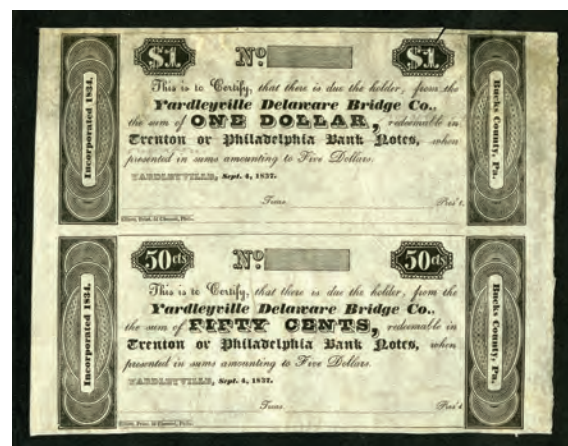 $1 Nº $1
This is to Certify, that there is due the holder, from the
Yardleyville Delaware Bridge Co.,
the sum of ONE DOLLAR, redeemable in
Trenton or Philadelphia Bank Notes, when
presented in sums amounting to Five Dollars.
YARDLEYVILLE, Sept. 4, 1837.
Treas. Pres't.
Incorporated 1834.
Bucks County, Pa.
50 cts Nº 50 cts
This is to Certify, that there is due the holder, from the
Yardleyville Delaware Bridge Co.,
the sum of FIFTY CENTS, redeemable in
Trenton or Philadelphia Bank Notes, when
presented in sums amounting to Five Dollars.
YARDLEYVILLE, Sept. 4, 1837.
Treas. Pres't
Incorporated 1834.
Bucks County, Pa.